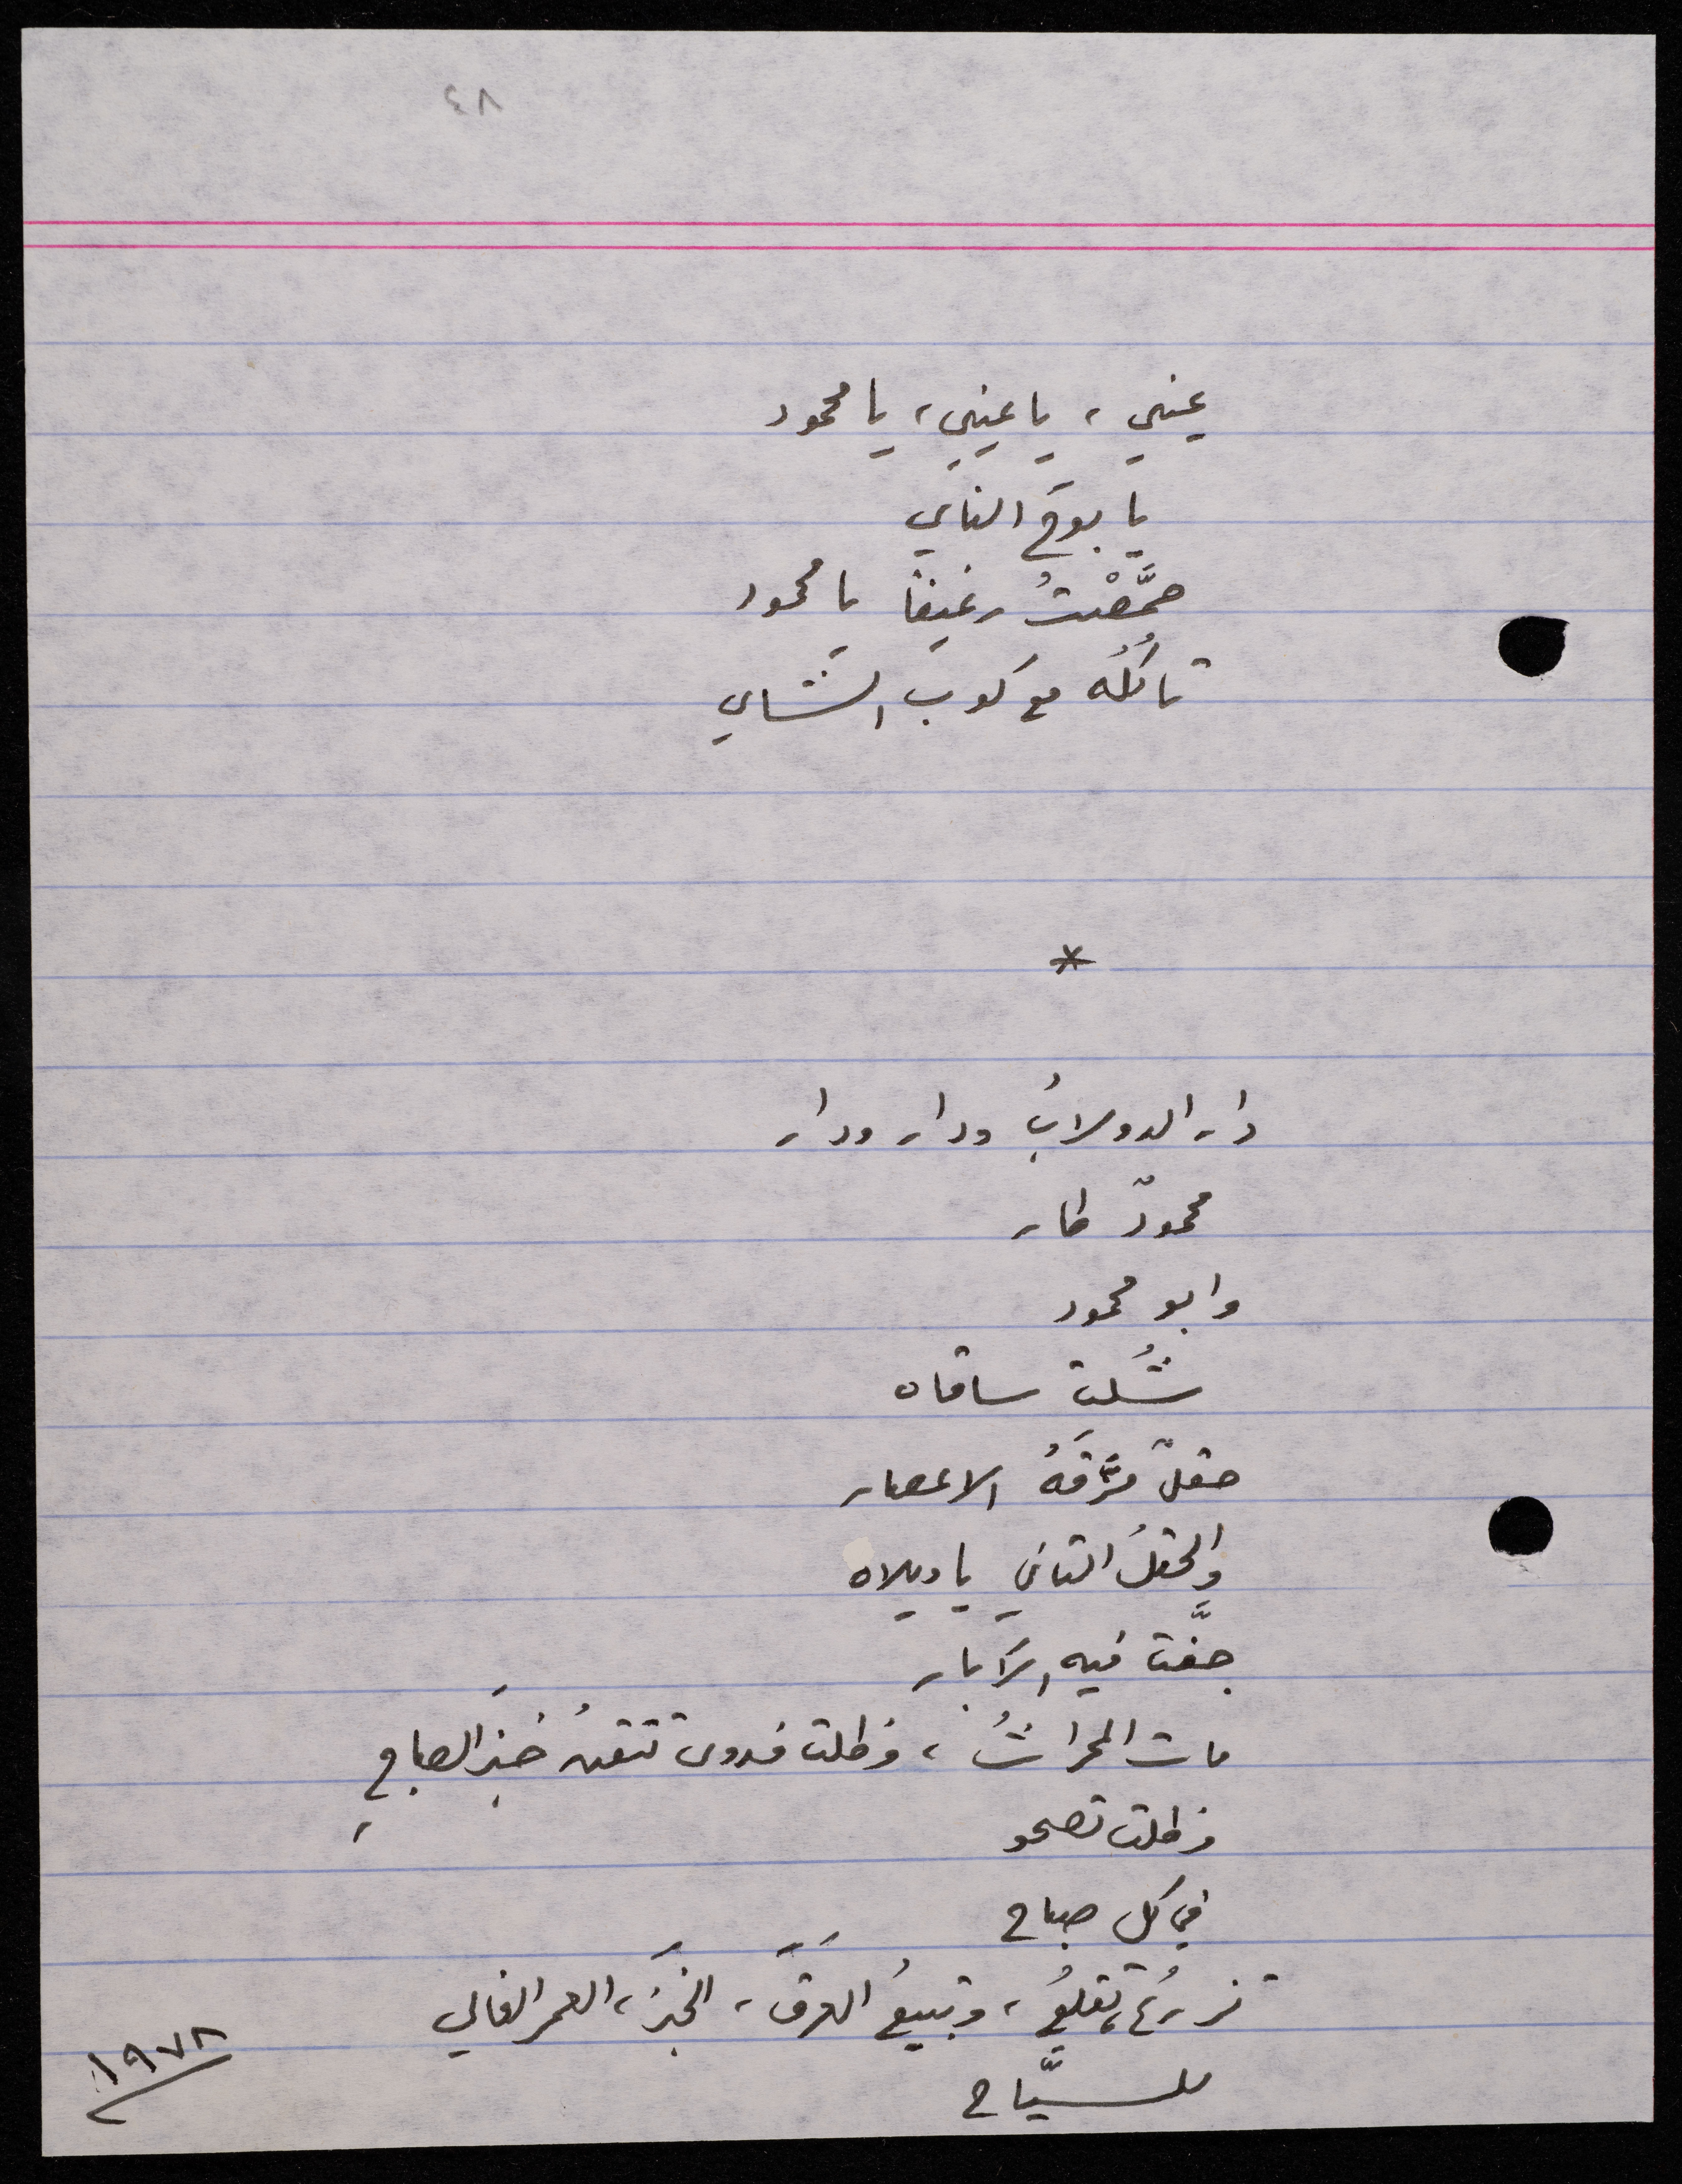 ٨٤
عيني، يا عيني، يا محمود
يا بوحَ الناي
حمَّصْتُ رغيفاً يا محمود
تأكلُه مع كوب الشاي
*
دار الدولابُ ودار ودار
محمودٌ طار
وابو محمود
شُلت ساقاه
حقلٌ مزَّقَهُ الاعصار
والحقلُ الثاني يا ويلاه
جفَّت فيه الآبار
مات المحراثُ، وظلت فدوى تتقنُ خبزَ الصاجِ
وظلت تصحو
في كل صباح
تزرعُ، تقلعُ، وتبيعُ العرقَ، الخبزَ، العمرَ الغالي
للسيَّاح
١٩٧٨